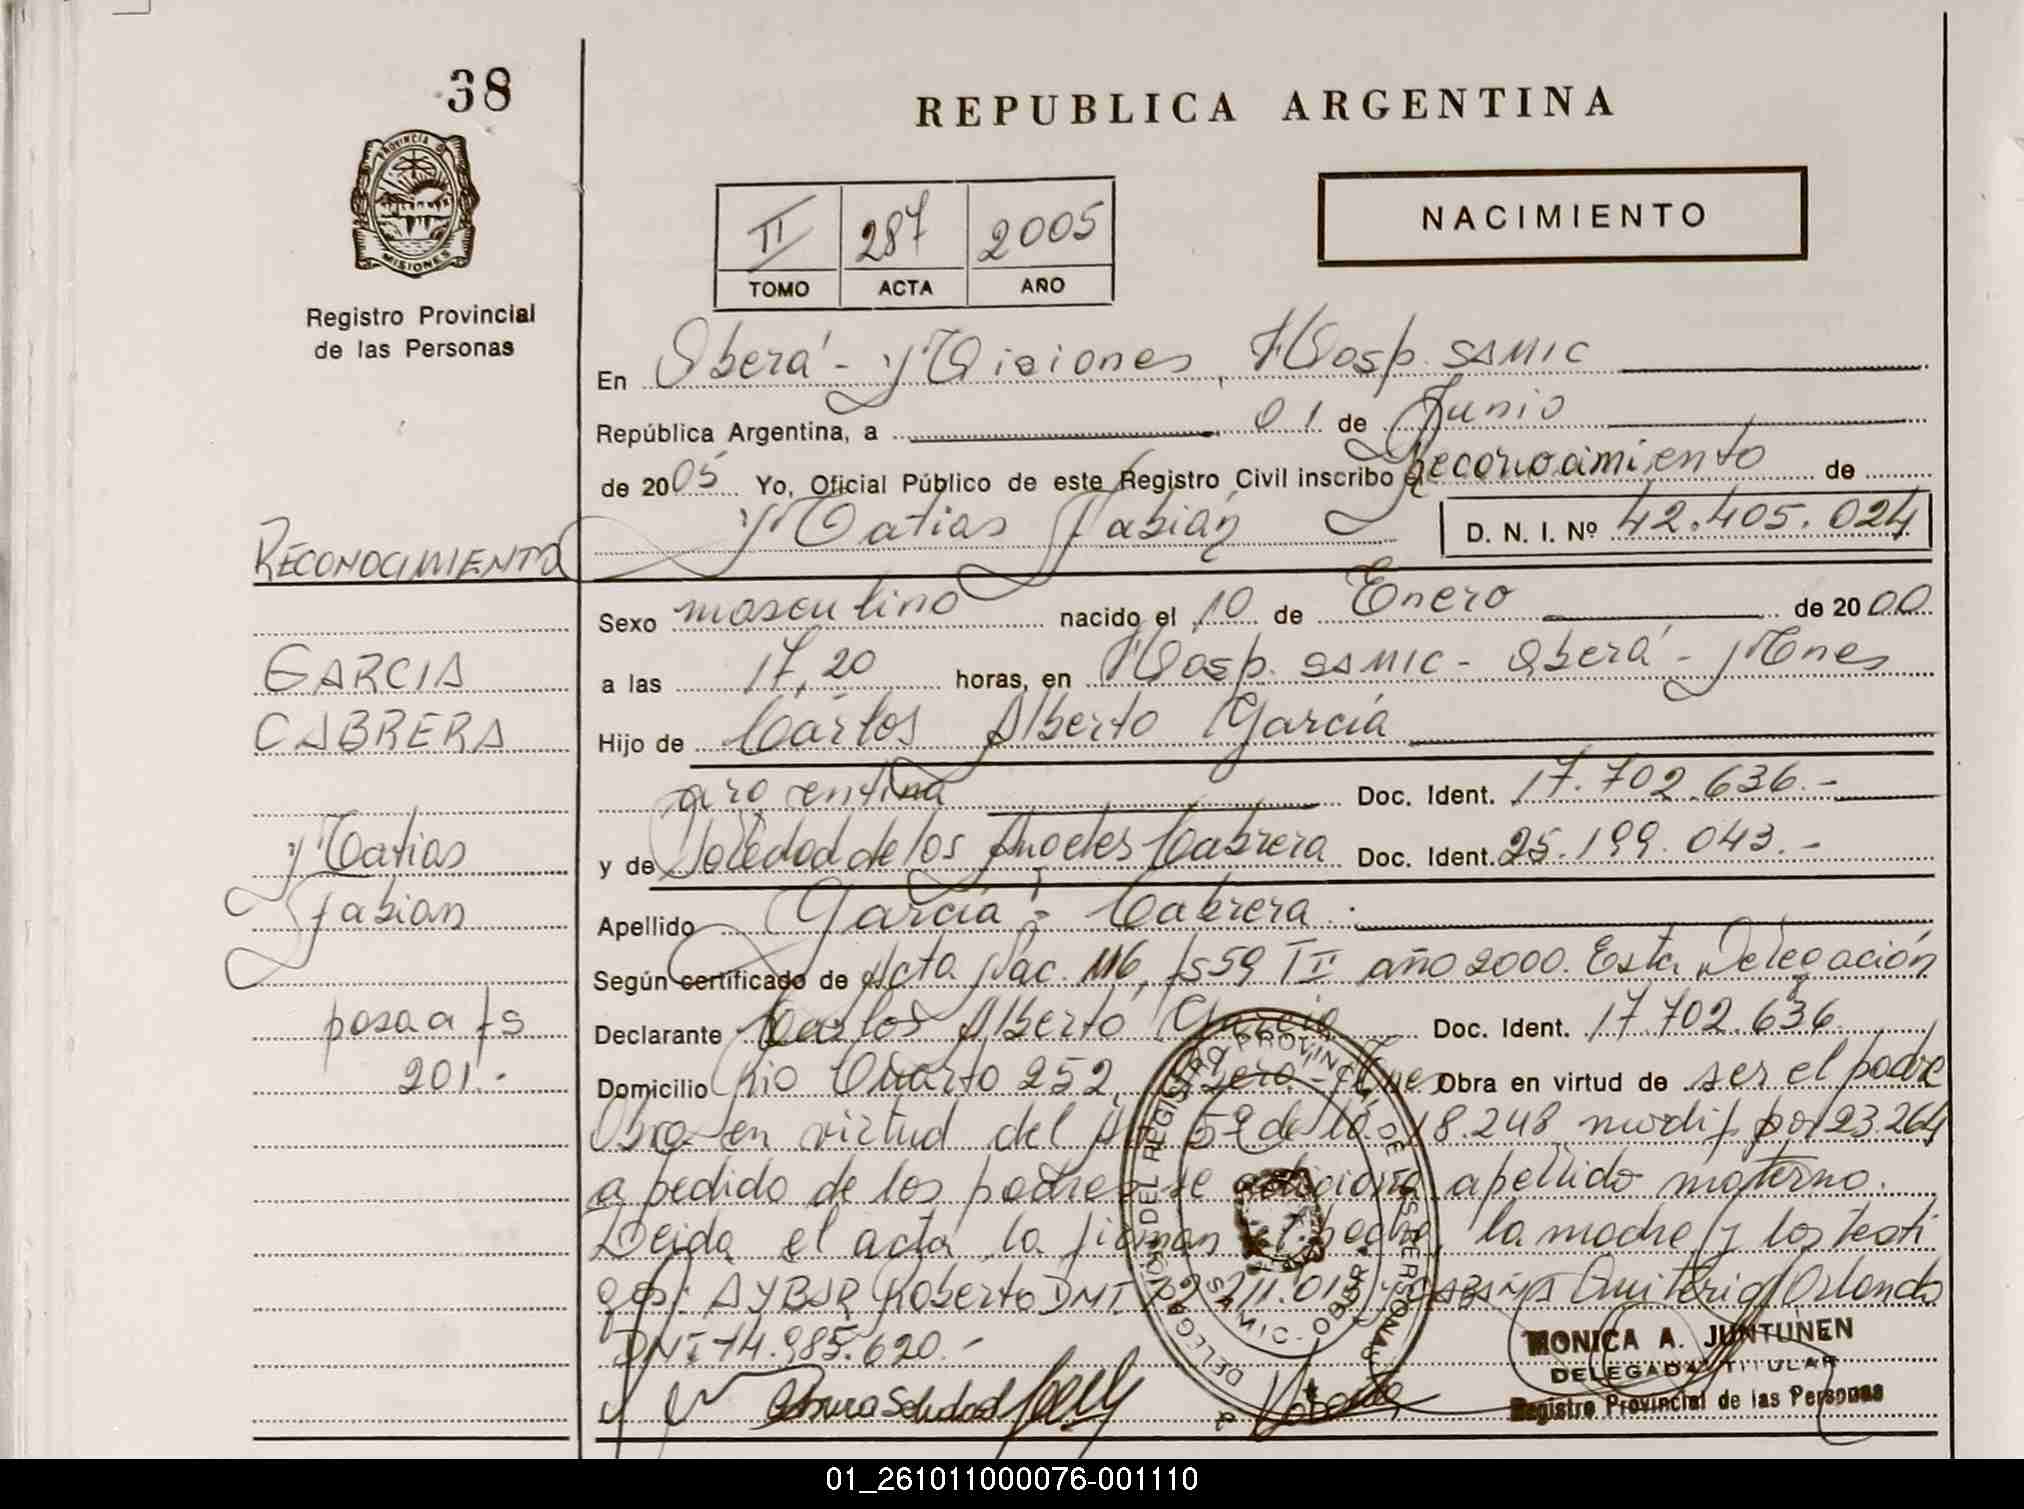 38
PROVINCIA DE
MISIONES
Registro Provincial
de las Personas
REPUBLICA ARGENTINA
NACIMIENTO
II 287 2005
TOMO ACTA AÑO
En Oberá - Misiones, Hosp. SAMIC
República Argentina, a 01 de Junio
de 2005 Yo, Oficial Público de este Registro Civil inscribo el reconocimiento de
Matias Fabián D. N. I. Nº 42.405.024
RECONOCIMIENTO
GARCIA
CABRERA
Matias
Fabian
pasa a fs
201.-
Sexo masculino nacido el 10 de Enero de 2000
a las 17,20 horas, en Hosp. SAMIC - Oberá - Mnes
Hijo de Carlos Alberto García
argentina Doc. Ident. 17.702.636.-
y de Soledad de los Angeles Cabrera Doc. Ident. 25.199.043.-
Apellido García - Cabrera
Según certificado de Acta Nac. 116, fs 59 TII año 2000. Esta Delegación
Declarante Carlos Alberto Garcia Doc. Ident. 17.702.636
Domicilio Rio Cuarto 252, Obera - Mnes Obra en virtud de ser el padre
Obra en virtud del Art 5º de la 18.248 modif por 23.264
a pedido de los padres se adiciona apellido materno.
Leida el acta la firman el padre, la madre y los testi
gos: Roberto DNI Orlando
DNI 14.985.620.-
DELEGACION DEL REGISTRO PROVINCIAL DE LAS PERSONAS
SAMIC - OBERA
MONICA A. JUNTUNEN
DELEGADA TITULAR
Registro Provincial de las Personas
01_261011000076-001110